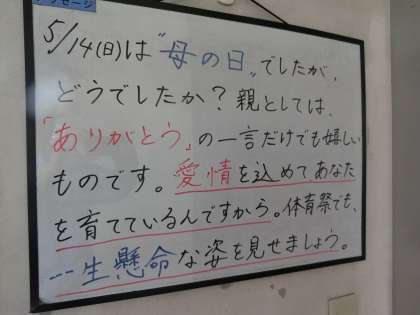 メッセージ
5/14(日)は"母の日"でしたが、
どうでしたか?親としては、
「ありがとう」の一言だけでも嬉しい
ものです。愛情を込めて、あなた
を育てているんですから。体育祭でも、
一生懸命な姿を見せましょう。